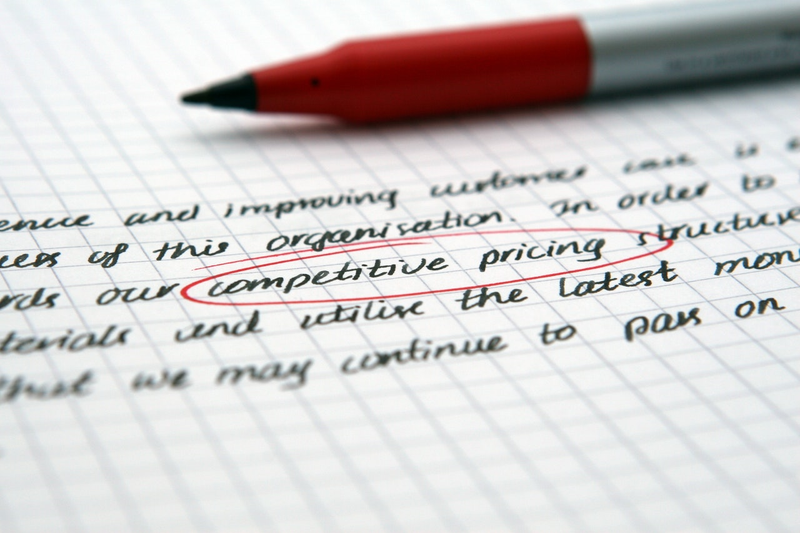 ence and improving customer care is
of this organisation. In order to
rds our competitive pricing structure
terials and utilise the latest
that we may continue to pass on